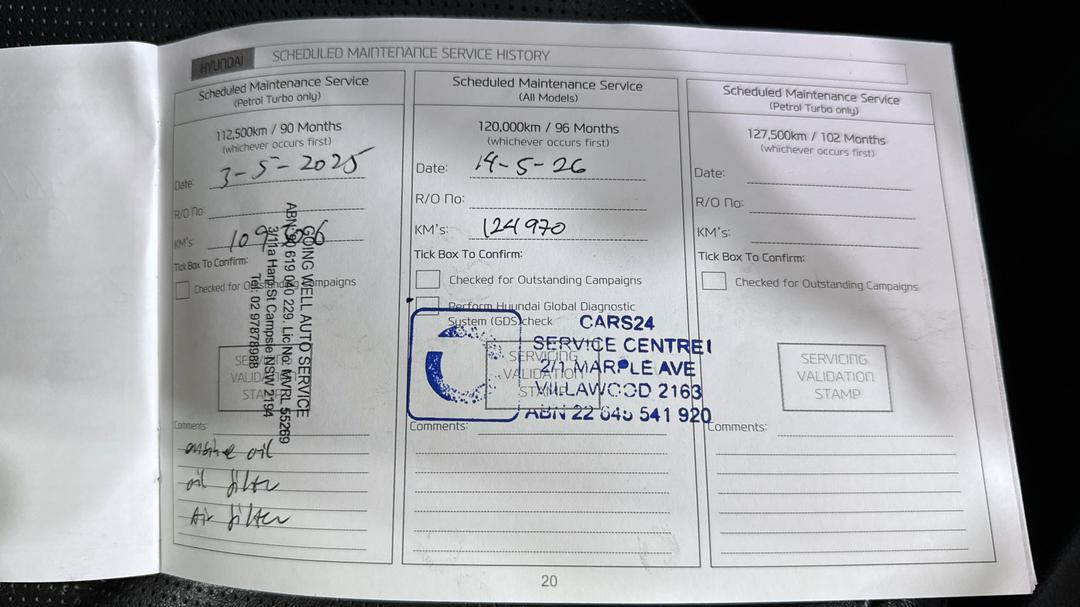 HYUNDAI
SCHEDULED MAINTENANCE SERVICE HISTORY
Scheduled Maintenance Service
(Petrol Turbo only)
112,500km / 90 Months
(whichever occurs first)
Date: 3-5-2025
R/O No:
KM's:
Tick Box To Confirm:
Checked for Outstanding Campaigns
GOING WELL AUTO SERVICE
619 040 229. Lic No: MVRL 55269
3/11a Harp St Campsie NSW 2194
Tel: 02 97878988
SERVICING
VALIDATION
STAMP
Comments:
engine oil
oil filter
Air filter
Scheduled Maintenance Service
(All Models)
120,000km / 96 Months
(whichever occurs first)
Date: 14-5-26
R/O No:
KM's: 124970
Tick Box To Confirm:
Checked for Outstanding Campaigns
Perform Hyundai Global Diagnostic
System (GDS) check
SERVICING
VALIDATION
STAMP
CARS24
SERVICE CENTRE
2/1 MARPLE AVE
VILLAWOOD 2163
ABN 22 645 541 920
Comments:
Scheduled Maintenance Service
(Petrol Turbo only)
127,500km / 102 Months
(whichever occurs first)
Date:
R/O No:
KM's:
Tick Box To Confirm:
Checked for Outstanding Campaigns
SERVICING
VALIDATION
STAMP
Comments:
20